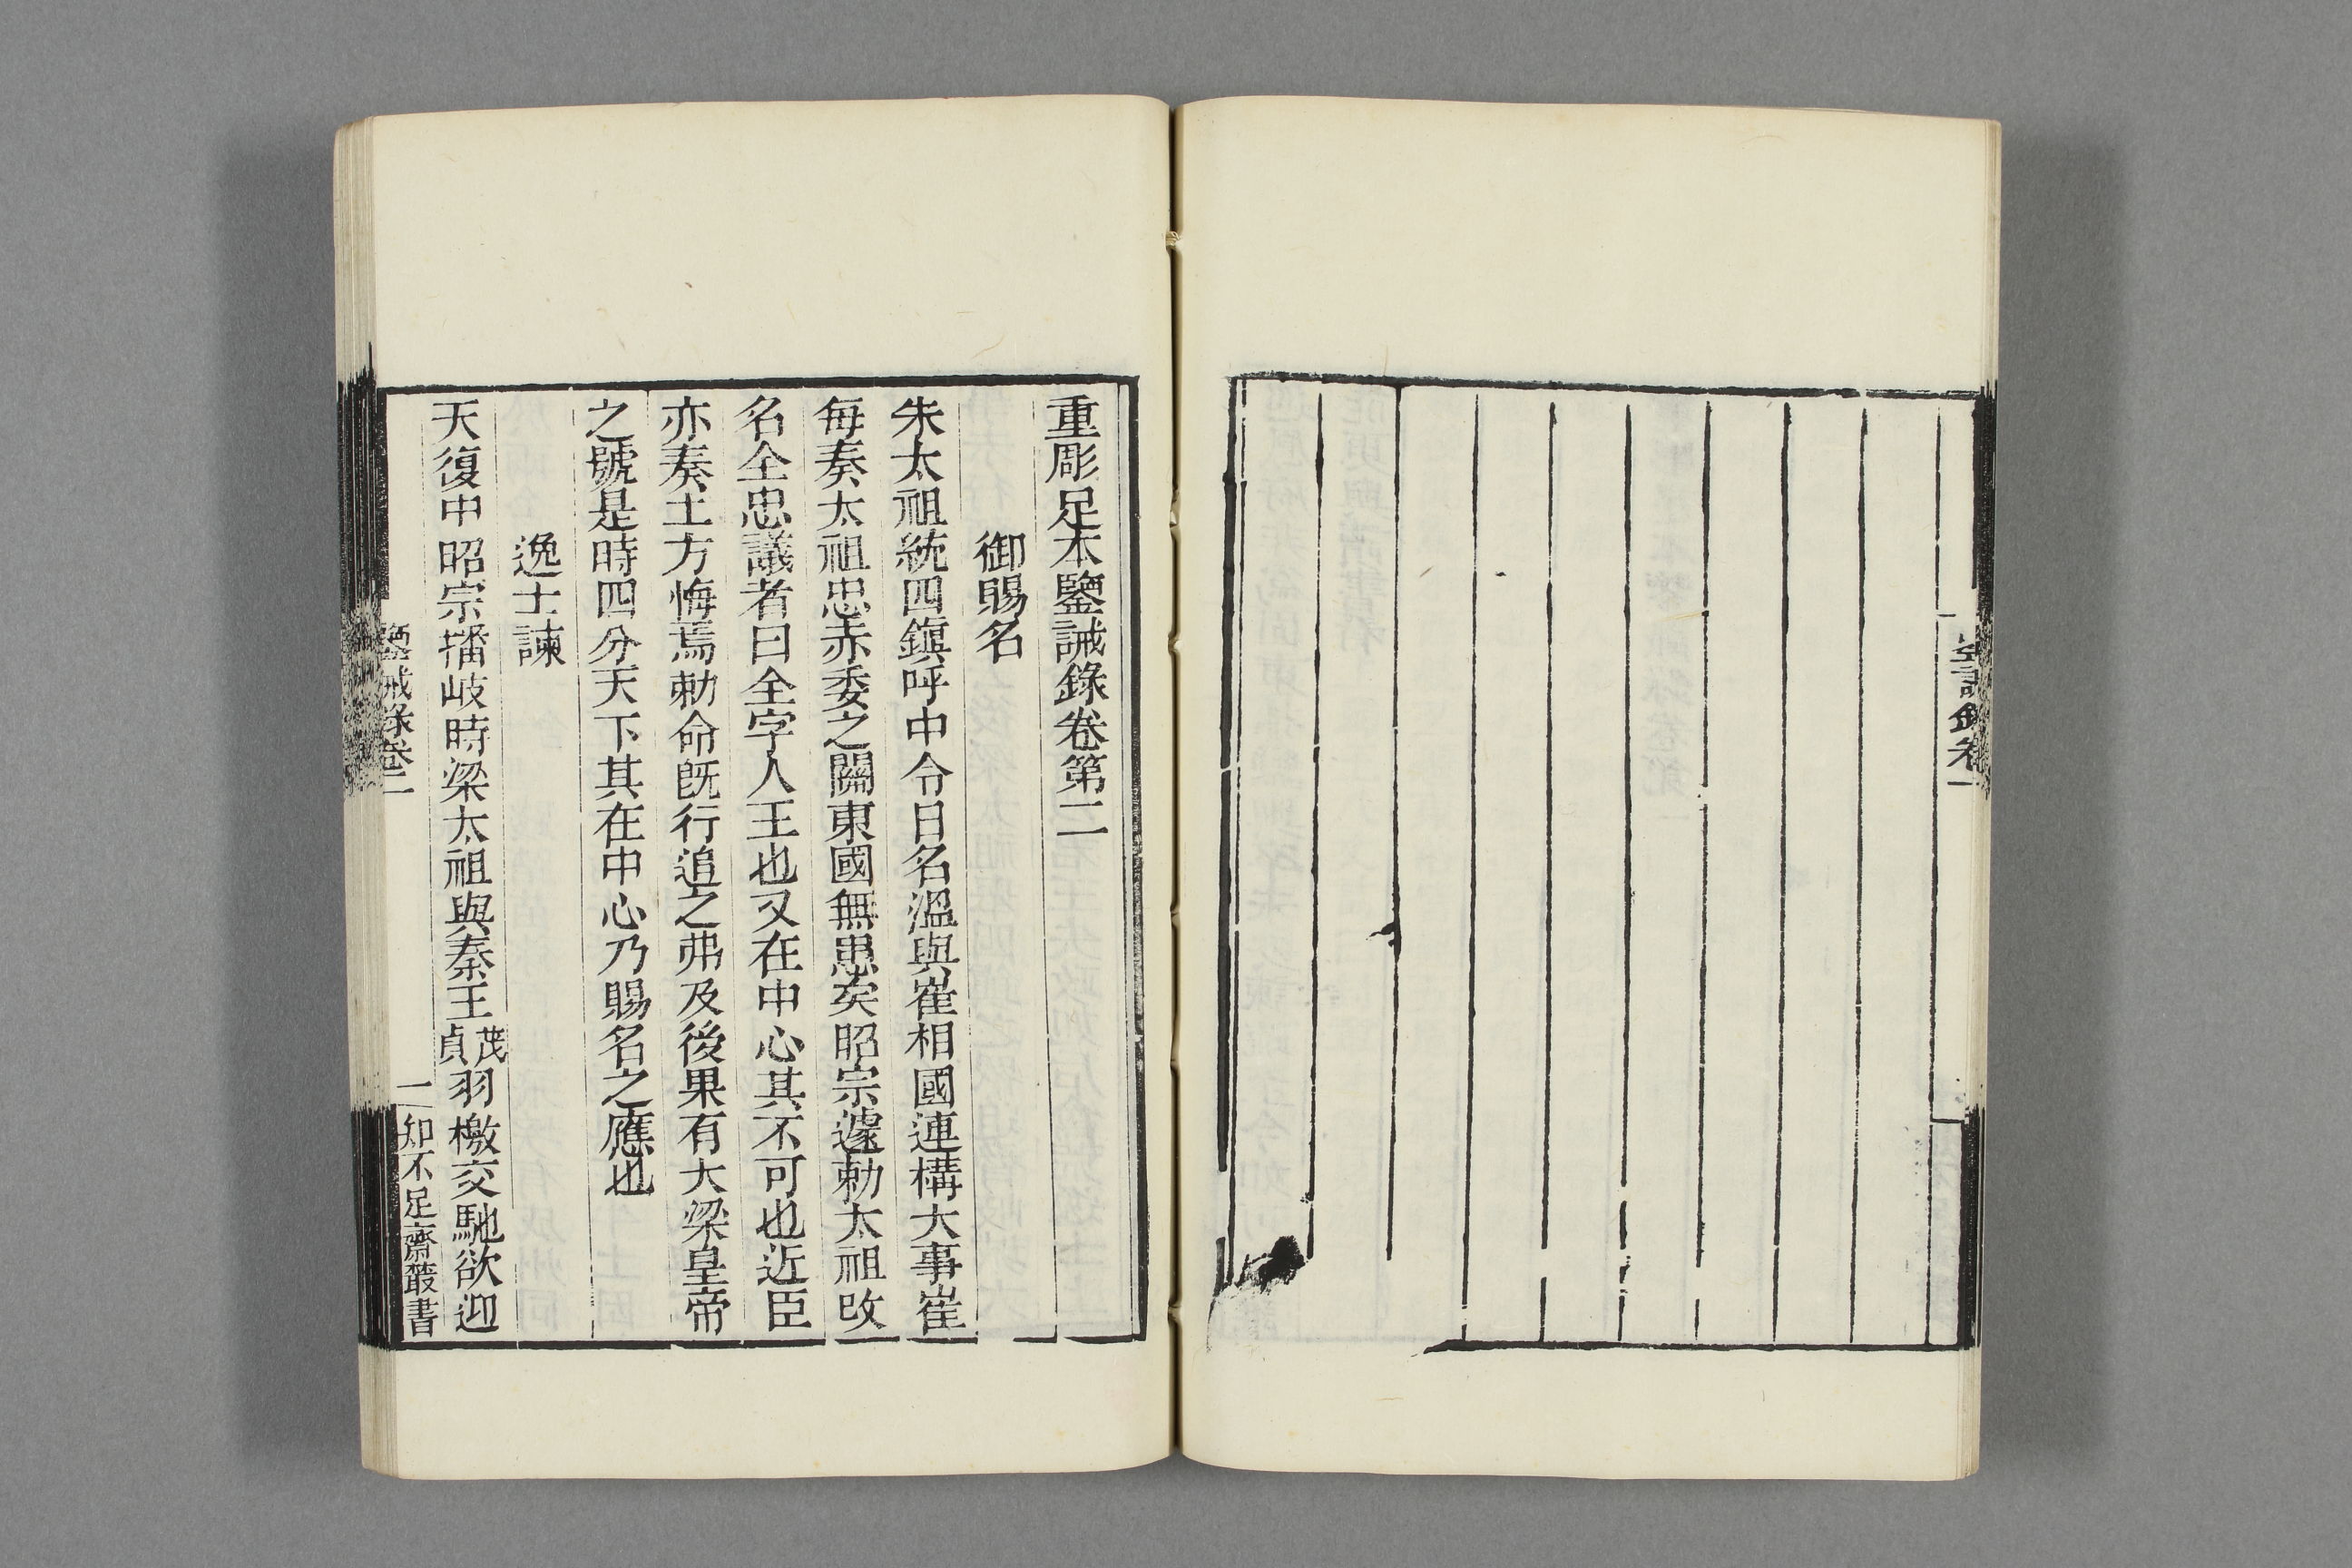 鑒誡錄卷一
重彫足本鑒誡錄卷第二
御賜名
朱太祖統四鎮呼中令日名溫與崔相國連構大事崔
每奏太祖忠赤委之關東國無患矣昭宗遽勅太祖改
名全忠議者曰全字人王也又在中心其不可也近臣
亦奏上方悔焉勅命既行追之弗及後果有大梁皇帝
之號是時四分天下其在中心乃賜名之應也
逸士諫
天復中昭宗播岐時梁太祖與秦王茂貞羽檄交馳欲迎
鑒誡錄卷二
一
知不足齋叢書